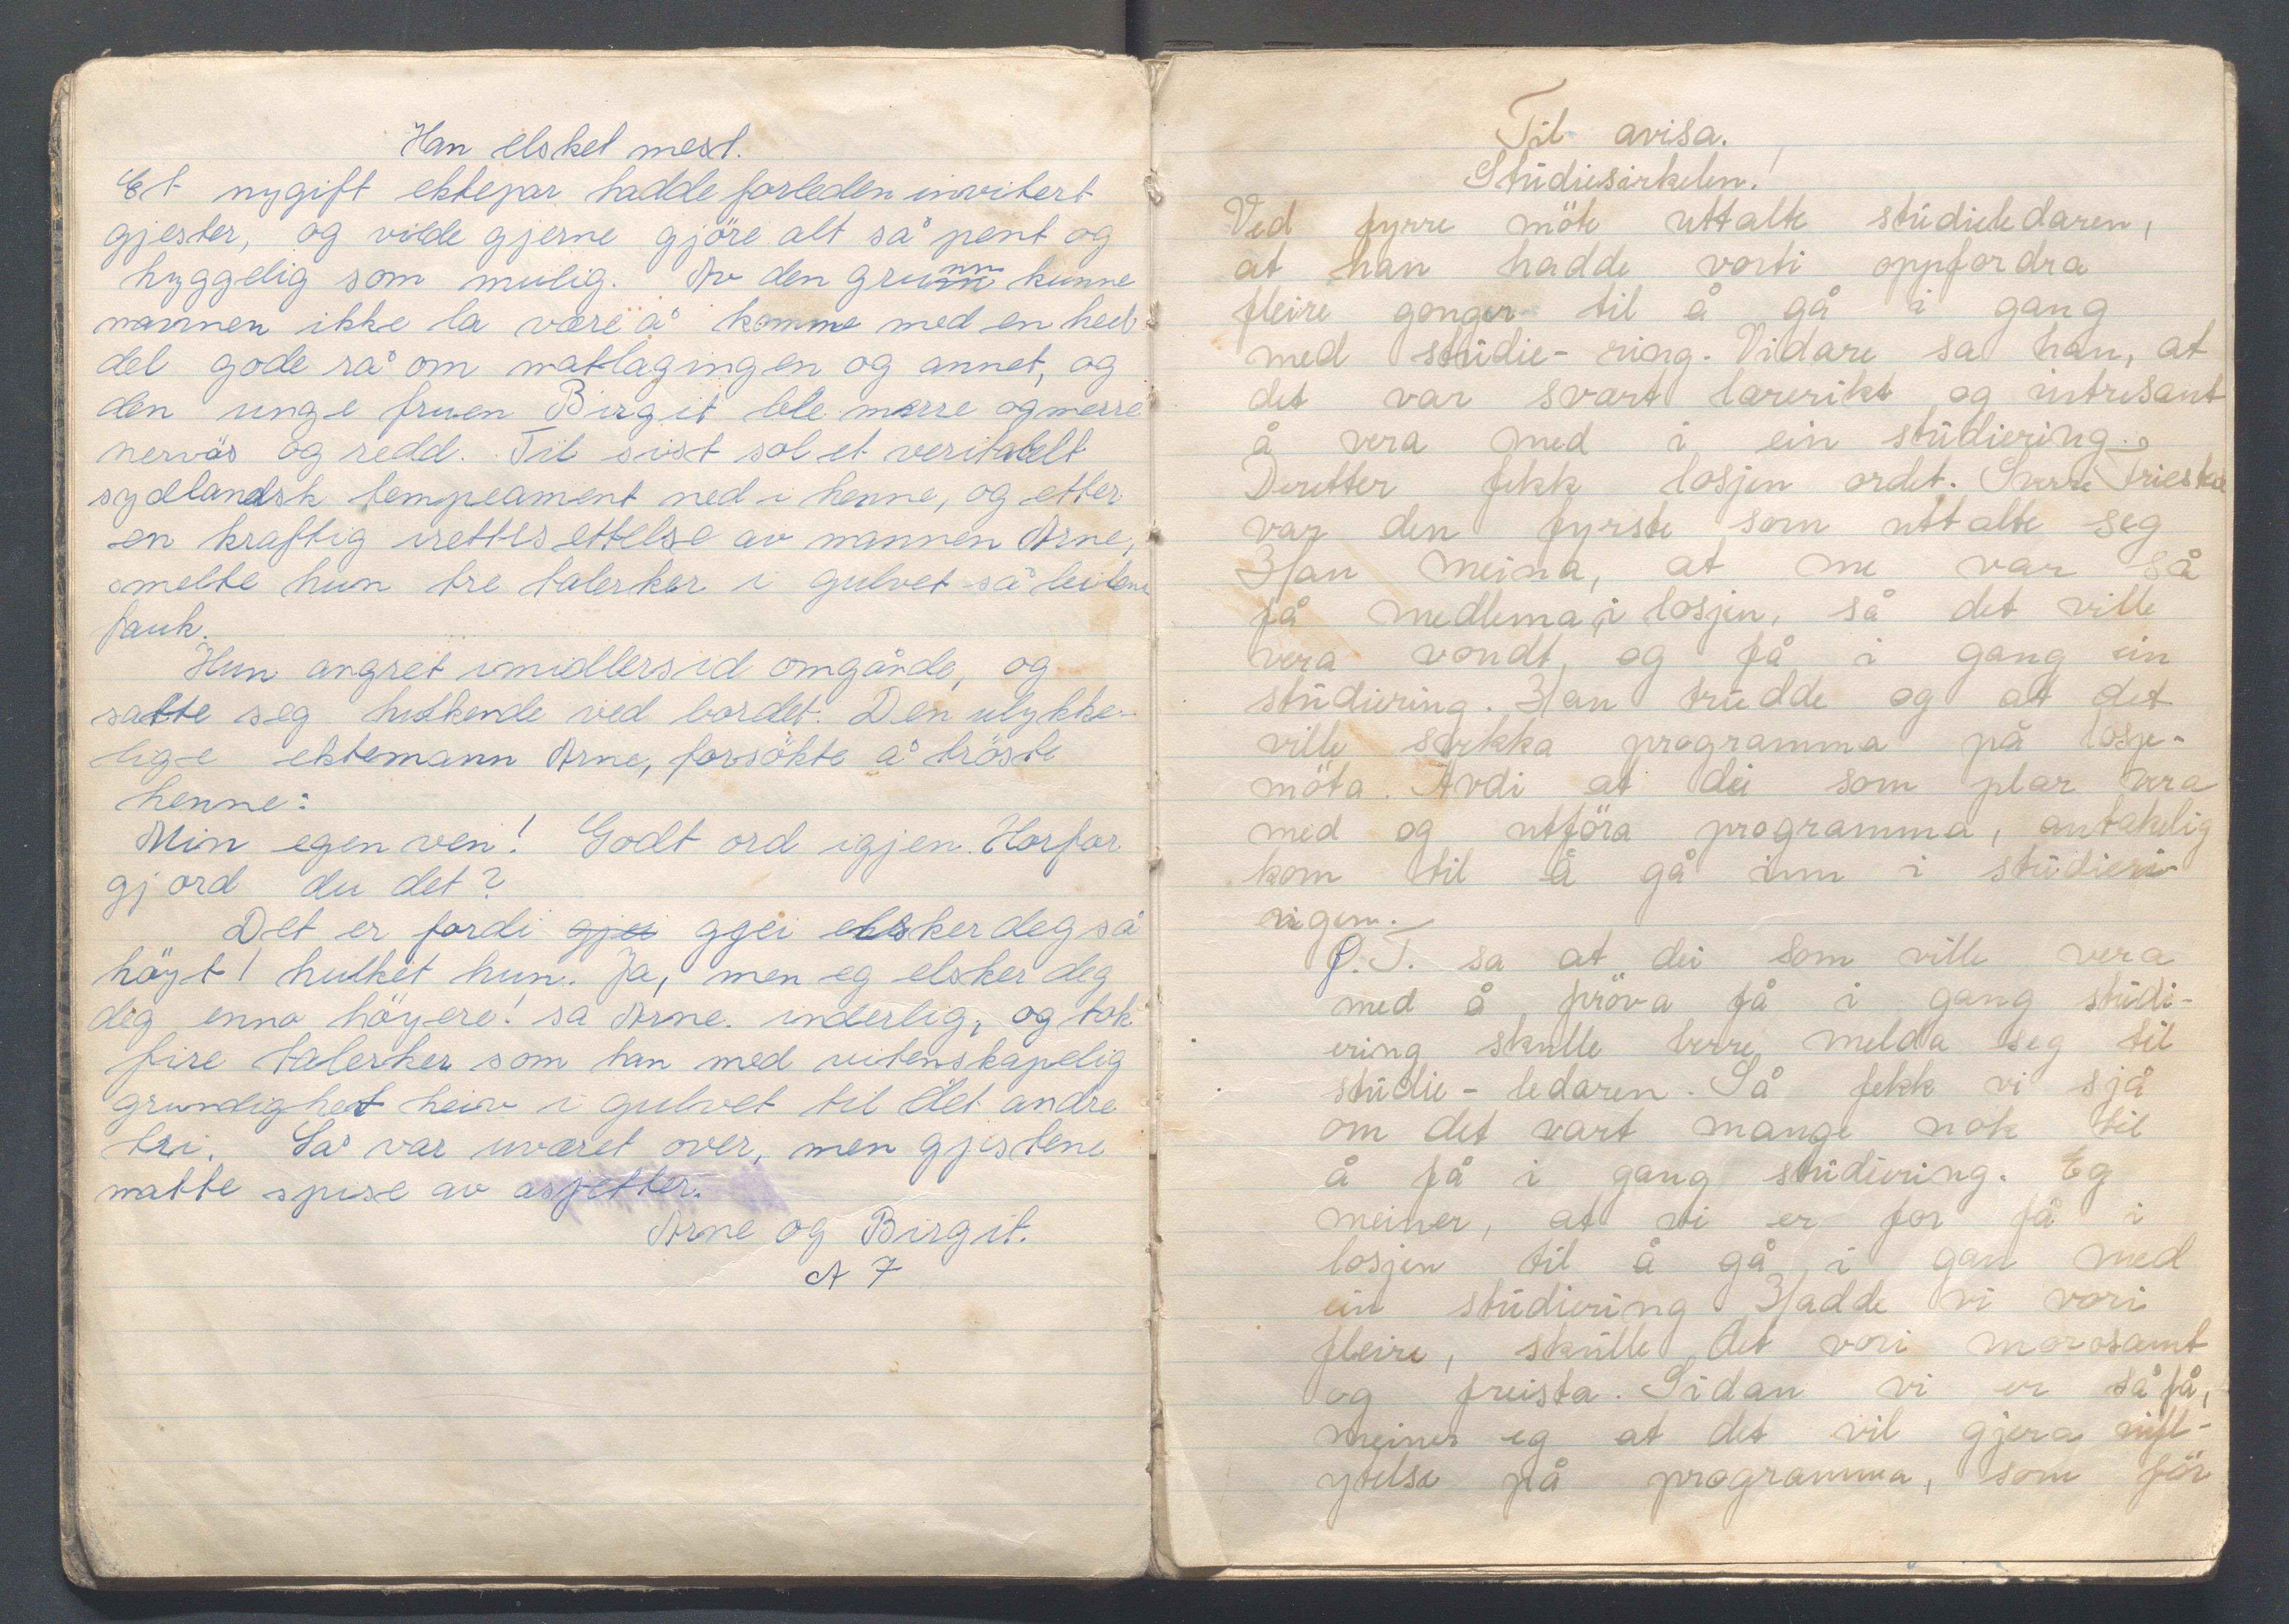 Han elsket mest.
Et nygift ektepar hadde forleden invitert
gjester, og vilde gjerne gjöre alt så pent og
hyggelig som mulig. Av den grunn kunne
mannen ikke la være å komme med en heel
del gode rå om matlagingen og annet, og
den unge fruen Birgit ble merre og merre
nervös og redd. Til sist sol et veritabelt
sydlandsk tempeament ned i henne, og etter
en kraftig irettesettelse av mannen Arne,
smelte hun tre talerker i gulvet så bitene
fauk.
Hun angret imidlersid omgånde, og
satte seg hulkende ved bordet. Den ulykke-
lige ektemann Arne, forsökte å tröste
henne:
Min egen ven! Godt ord igjen. Horfor
gjord du det?
Det er fordi gjei ggei elsker deg så
höyt! hulket hun. Ja, men eg elsker deg
deg enno höyere! sa Arne. inderlig, og tok
fire talerker som han med vitenskapelig
grundighet heiv i gulvet til det andre
tri. Så var uværet over, men gjestene
matte spise av asjetter.
Arne og Birgit.
A 7
Til avisa.
Studiesirkelen!
Ved fyrre möte uttalte studieledaren,
at han hadde vorti oppfordra
fleire gonger til å gå i gang
med studie-ring. Vidare sa han, at
det var svært lærerikt og intresant
å vera med i ein studiering.
Deretter fekk losjen ordet. Sverre
var den fyrste som uttalte seg
Han meina, at me var så
få medlema i losjen, så det ville
vera vondt, og få i gang ein
studiering. Han trudde og at det
ville svekka programma på losje-
möta. Avdi at dei som plar vera
med og utföra programma, antakelig
kom til å gå inn i studieri-
ingen.
O.T. sa at dei som ville vera
med å pröva få i gang studi-
ering skulle berre melda seg til
studie-ledaren. Så fekk vi sjå
om det vart mange nok til
å få i gang studiering. Eg
meiner, at vi er for få i
losjen til å gå i gan med
ein studiering Hadde vi vori
fleire, skulle det vori morosamt
og freista. Sidan vi er så få,
meiner eg at det vil gjera innfl-
ytelse på programma, som för